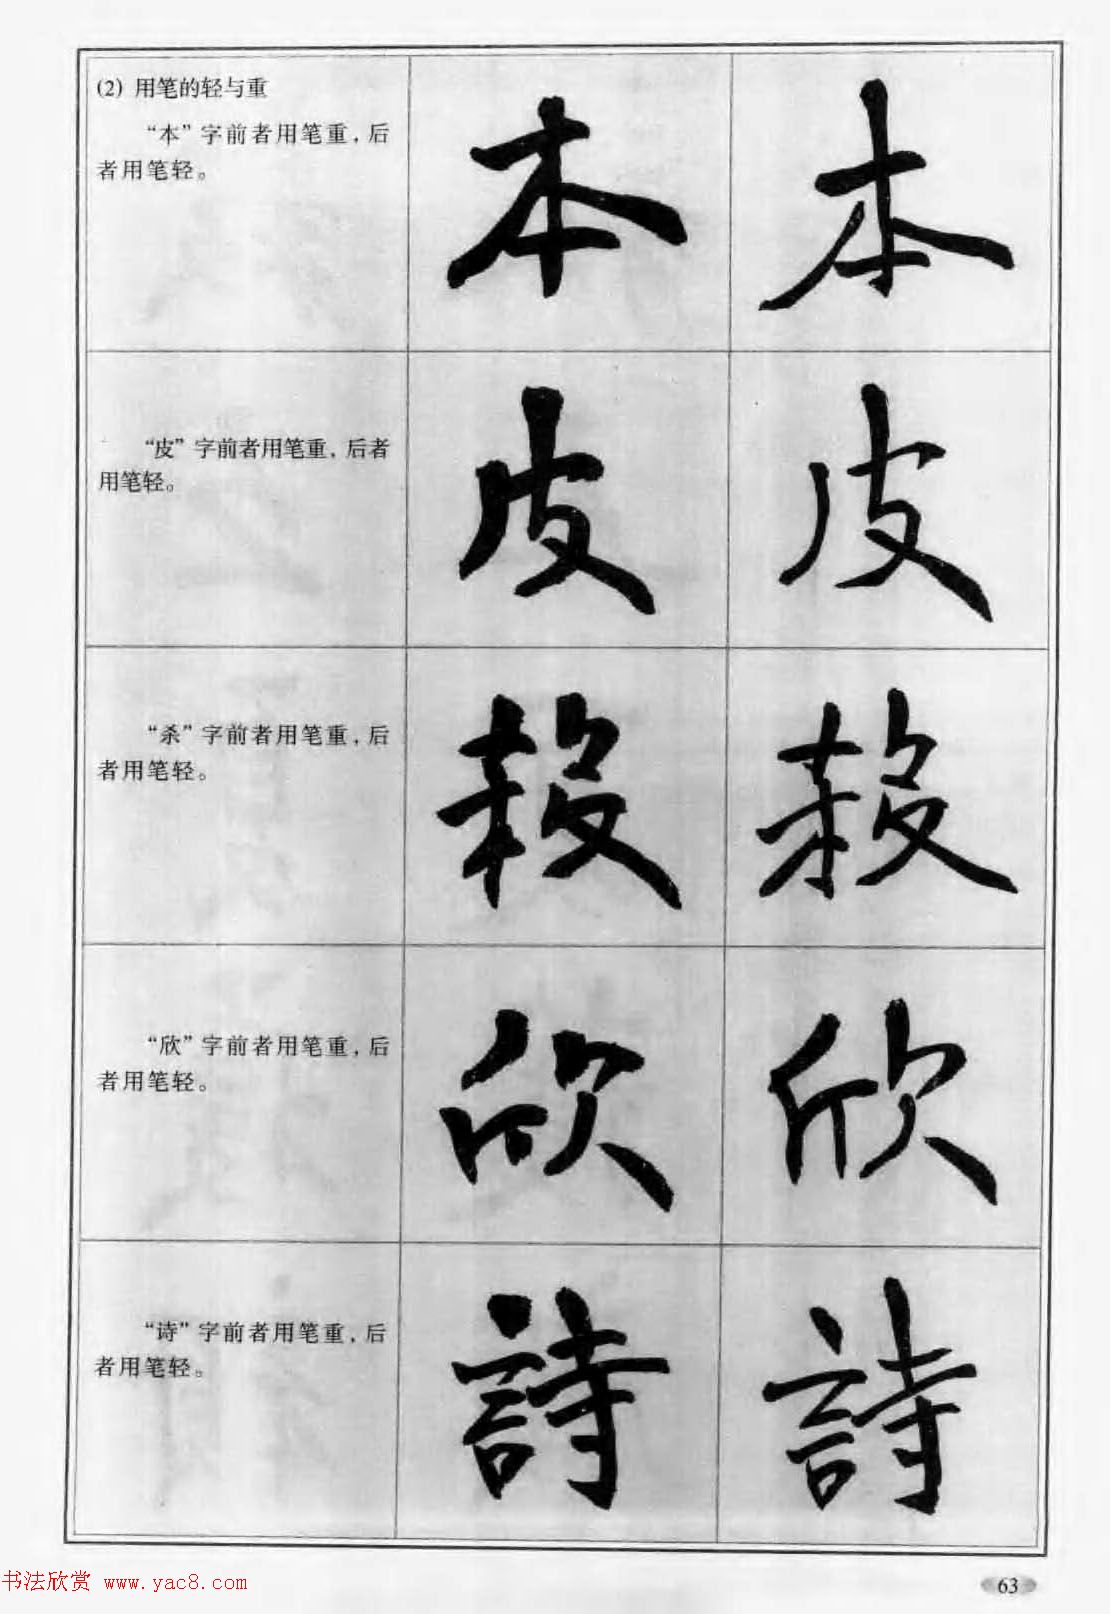 (2) 用笔的轻与重
“本”字前者用笔重，后
者用笔轻。
本 本
“皮”字前者用笔重，后者
用笔轻。
皮 皮
“杀”字前者用笔重，后
者用笔轻。
殺 殺
“欣”字前者用笔重，后
者用笔轻。
欣 欣
“诗”字前者用笔重，后
者用笔轻。
詩 詩
书法欣赏 www.yac8.com
63